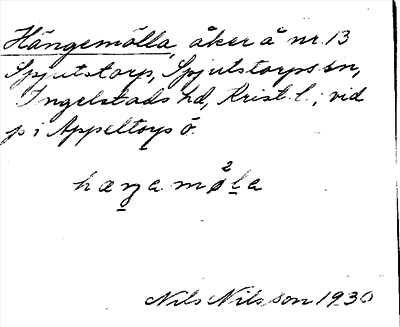 Hängemölla, åker å nr. 13
Spjutstorp, Spjutstorps sn,
Ingelstads hd, Krist. l.; vid
p i Appeltorp ö.
hæŋamǿla
2
Nils Nilsson 1930